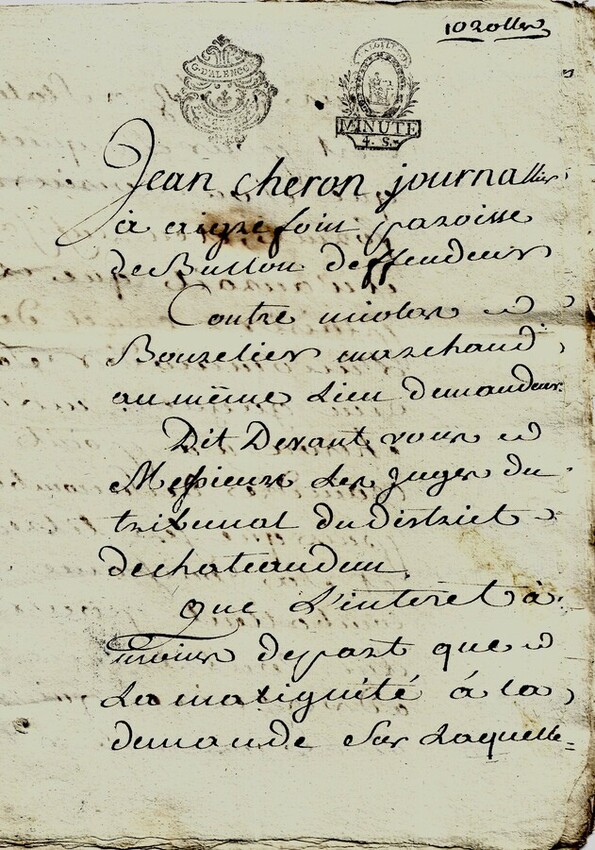 10 rolles
G. D'ALENÇON
LA LOI LE ROI
MINUTE
4. S.
Jean cheron journallier
à aigrefoin paroisse
de Bullou deffendeur
Contre nicolas
Bourelier marchand
au même Lieu demandeur
Dit Devant vous
Messieurs Les Juges du
tribunal du district
de chateaudun
que L'interet à
moins de part que
La malignité à la
demande Sur Laquelle=